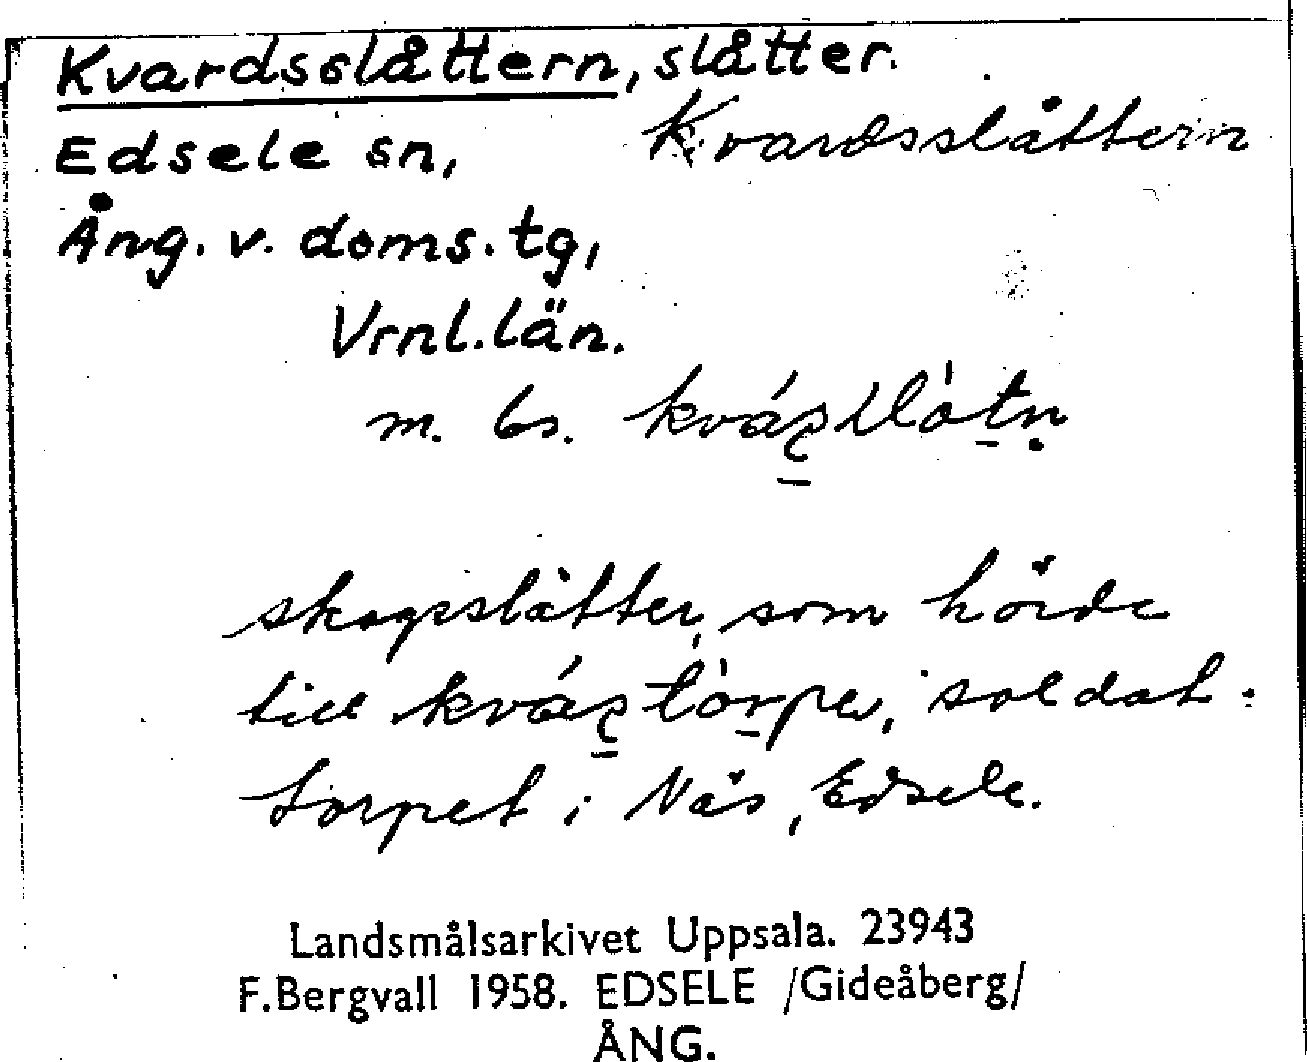 Kvardsslåttern, slätter.
Kvardsslåttern
Edsele sn,
Ång. v. doms. tg,
Vrnl. län.
m. bs.
skogsslåtter, som hörde
till soldat-
torpet i Näs, Edsele.
Landsmålsarkivet Uppsala. 23943
F.Bergvall 1958. EDSELE /Gideåberg/
ÅNG.